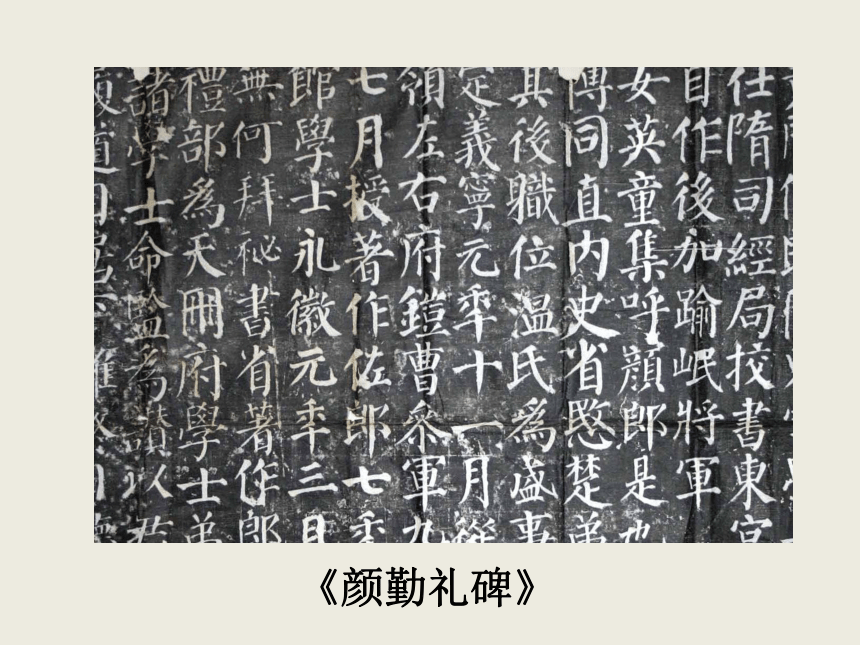 仕隋司經局挍書東宮
自作後加踰岷將軍
女英童集呼顔郎是也
愽同直内史省愍楚弟
其後職位温氏爲盛事
定義寧元年十一月從
領左右府鎧曹參軍九
七月授著作佐郎七年
館學士永徽元年三月
無何拜祕書省著作郎
禮部爲天冊府學士弟
諸學士命監爲讃以
《颜勤礼碑》